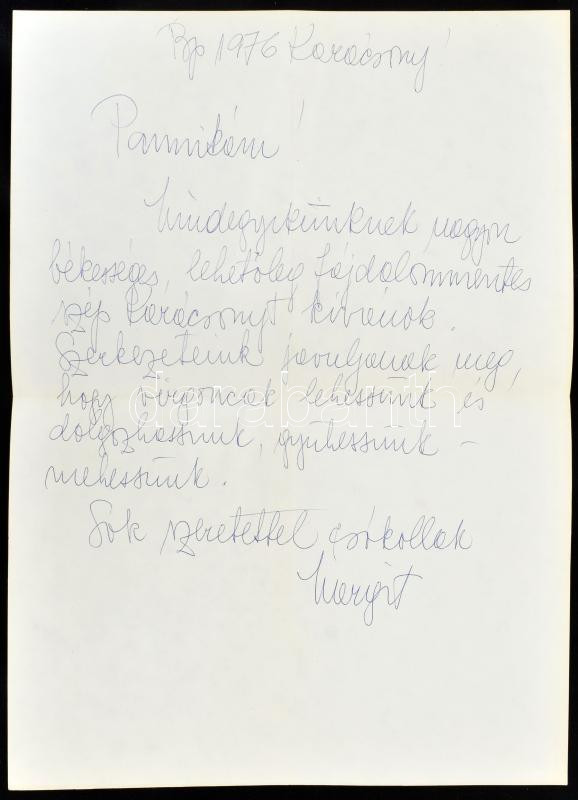 Bp 1976 Karácsony!
Pannikám!
Mindegyikünknek nagyon
békességes, lehetőleg fájdalommentes
szép Karácsonyt kívánok.
Szerkezeteink javuljanak meg,
hogy virgoncak lehessünk és
dolgozhassunk, gyűhessünk –
mehessünk.
Sok szeretettel csókollak
Margit
darabanth